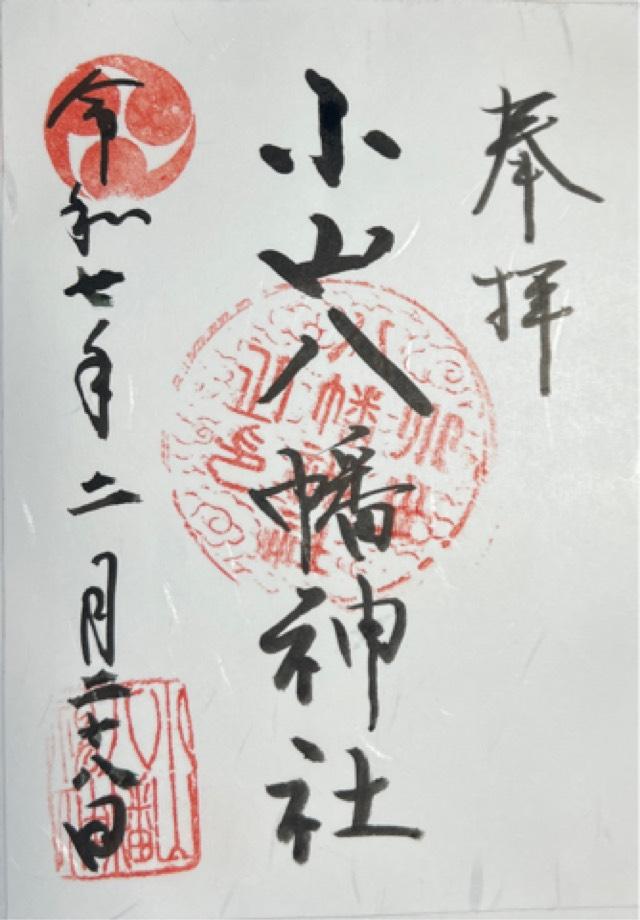 奉拝
小山八幡神社
令和七年二月二十八日